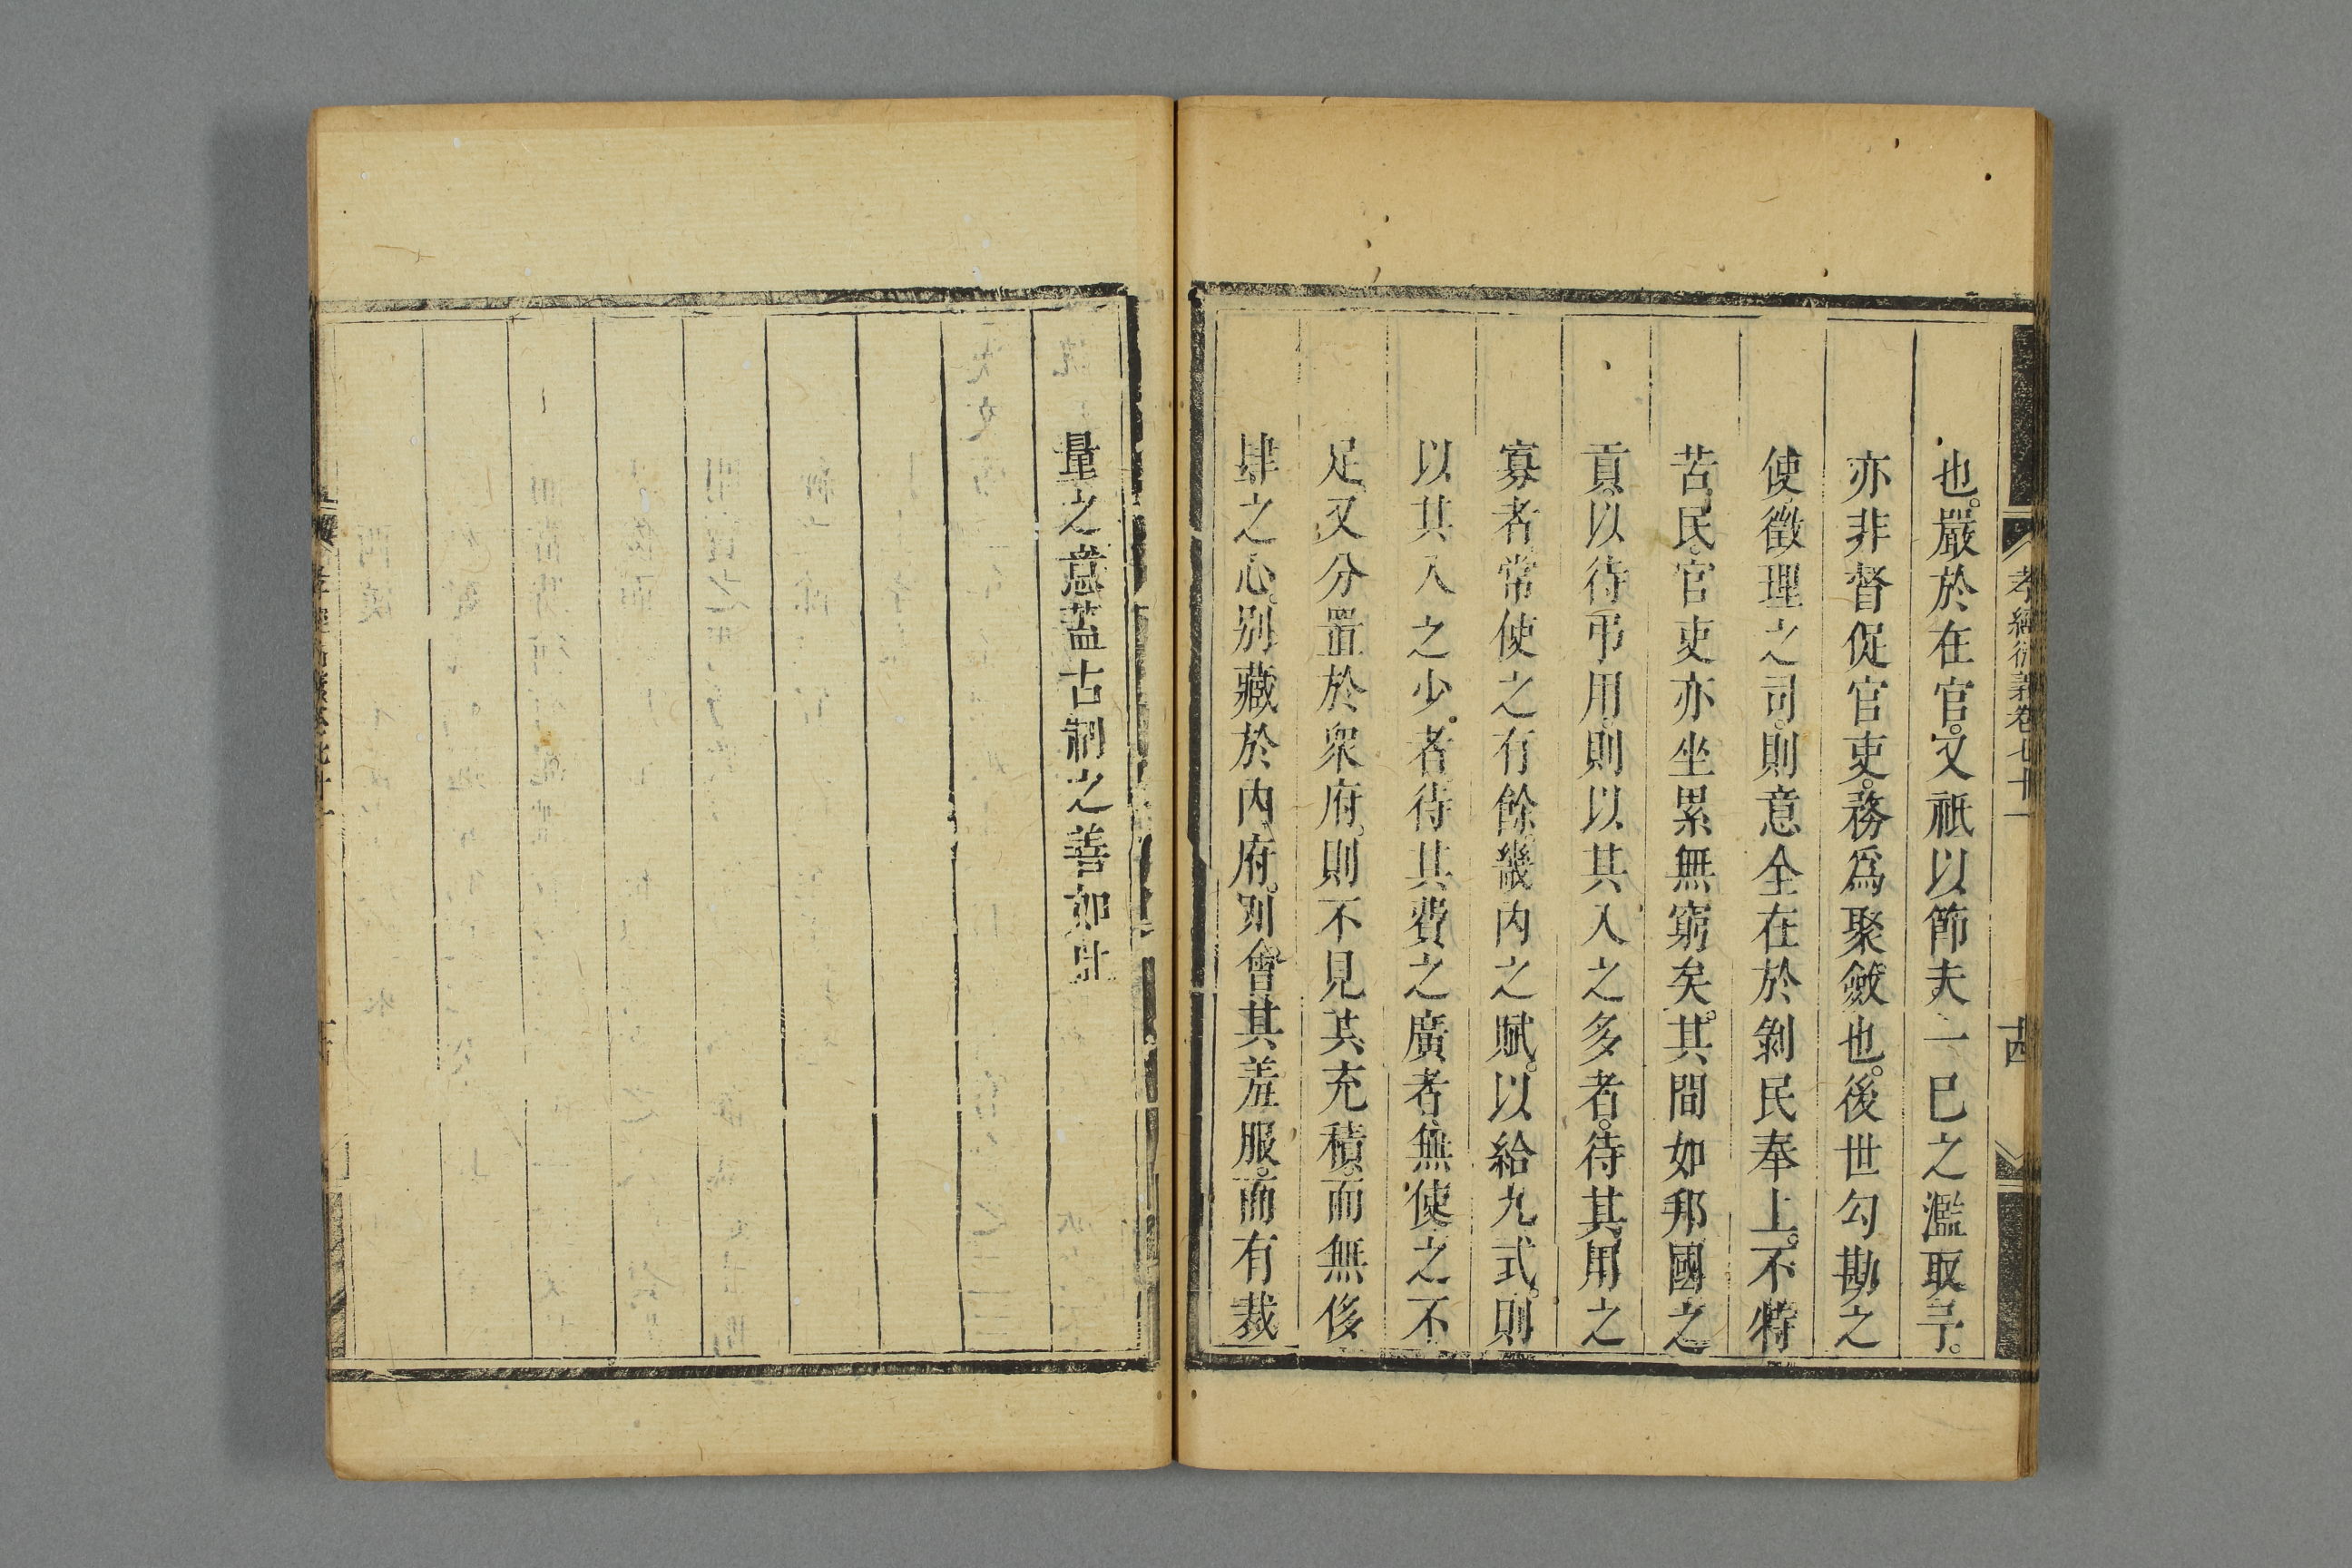 孝經衍義卷七十一
十四
也。嚴於在官。又祇以節夫一巳之濫取予。
亦非督促官吏。務爲聚斂也。後世勾勘之
使徵理之司。則意全在於剝民奉上。不特
苦民。官吏亦坐累無窮矣。其間如邦國之
貢。以待弔用。則以其入之多者。待其用之
寡者。常使之有餘。畿内之賦。以給九式。則
以其入之少者。待其費之廣者。無使之不
足。又分置於衆府。則不見其充積。而無侈
肆之心。别藏於内府。别會其羞服。而有裁
量之意葢古制之善如此